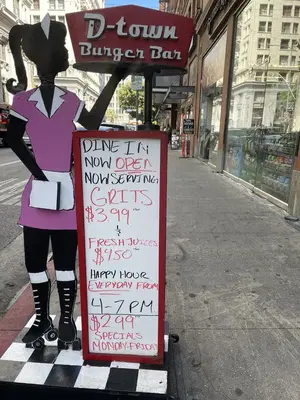 D-town
Burger Bar
DINE IN
NOW OPEN
NOW SERVING
GRITS
$3.99
&
FRESH JUICES
$4.50
HAPPY HOUR
EVERYDAY FROM
4-7 PM
$2.99
SPECIALS
MONDAY-FRIDAY